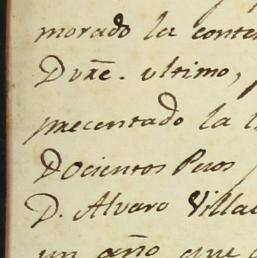 morado la conte
Dure. ultimo,
precentado la l
Docientos Pesos
D. Alvaro Villa
un año que